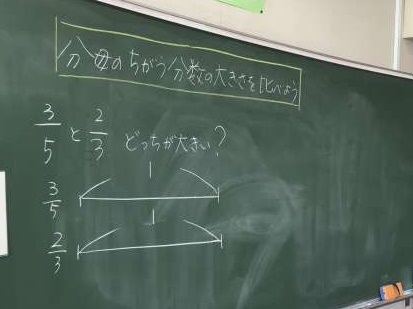 分母のちがう分数の大きさを比べよう
3/5と2/3 どっちが大きい?
3/5 1
2/3 1